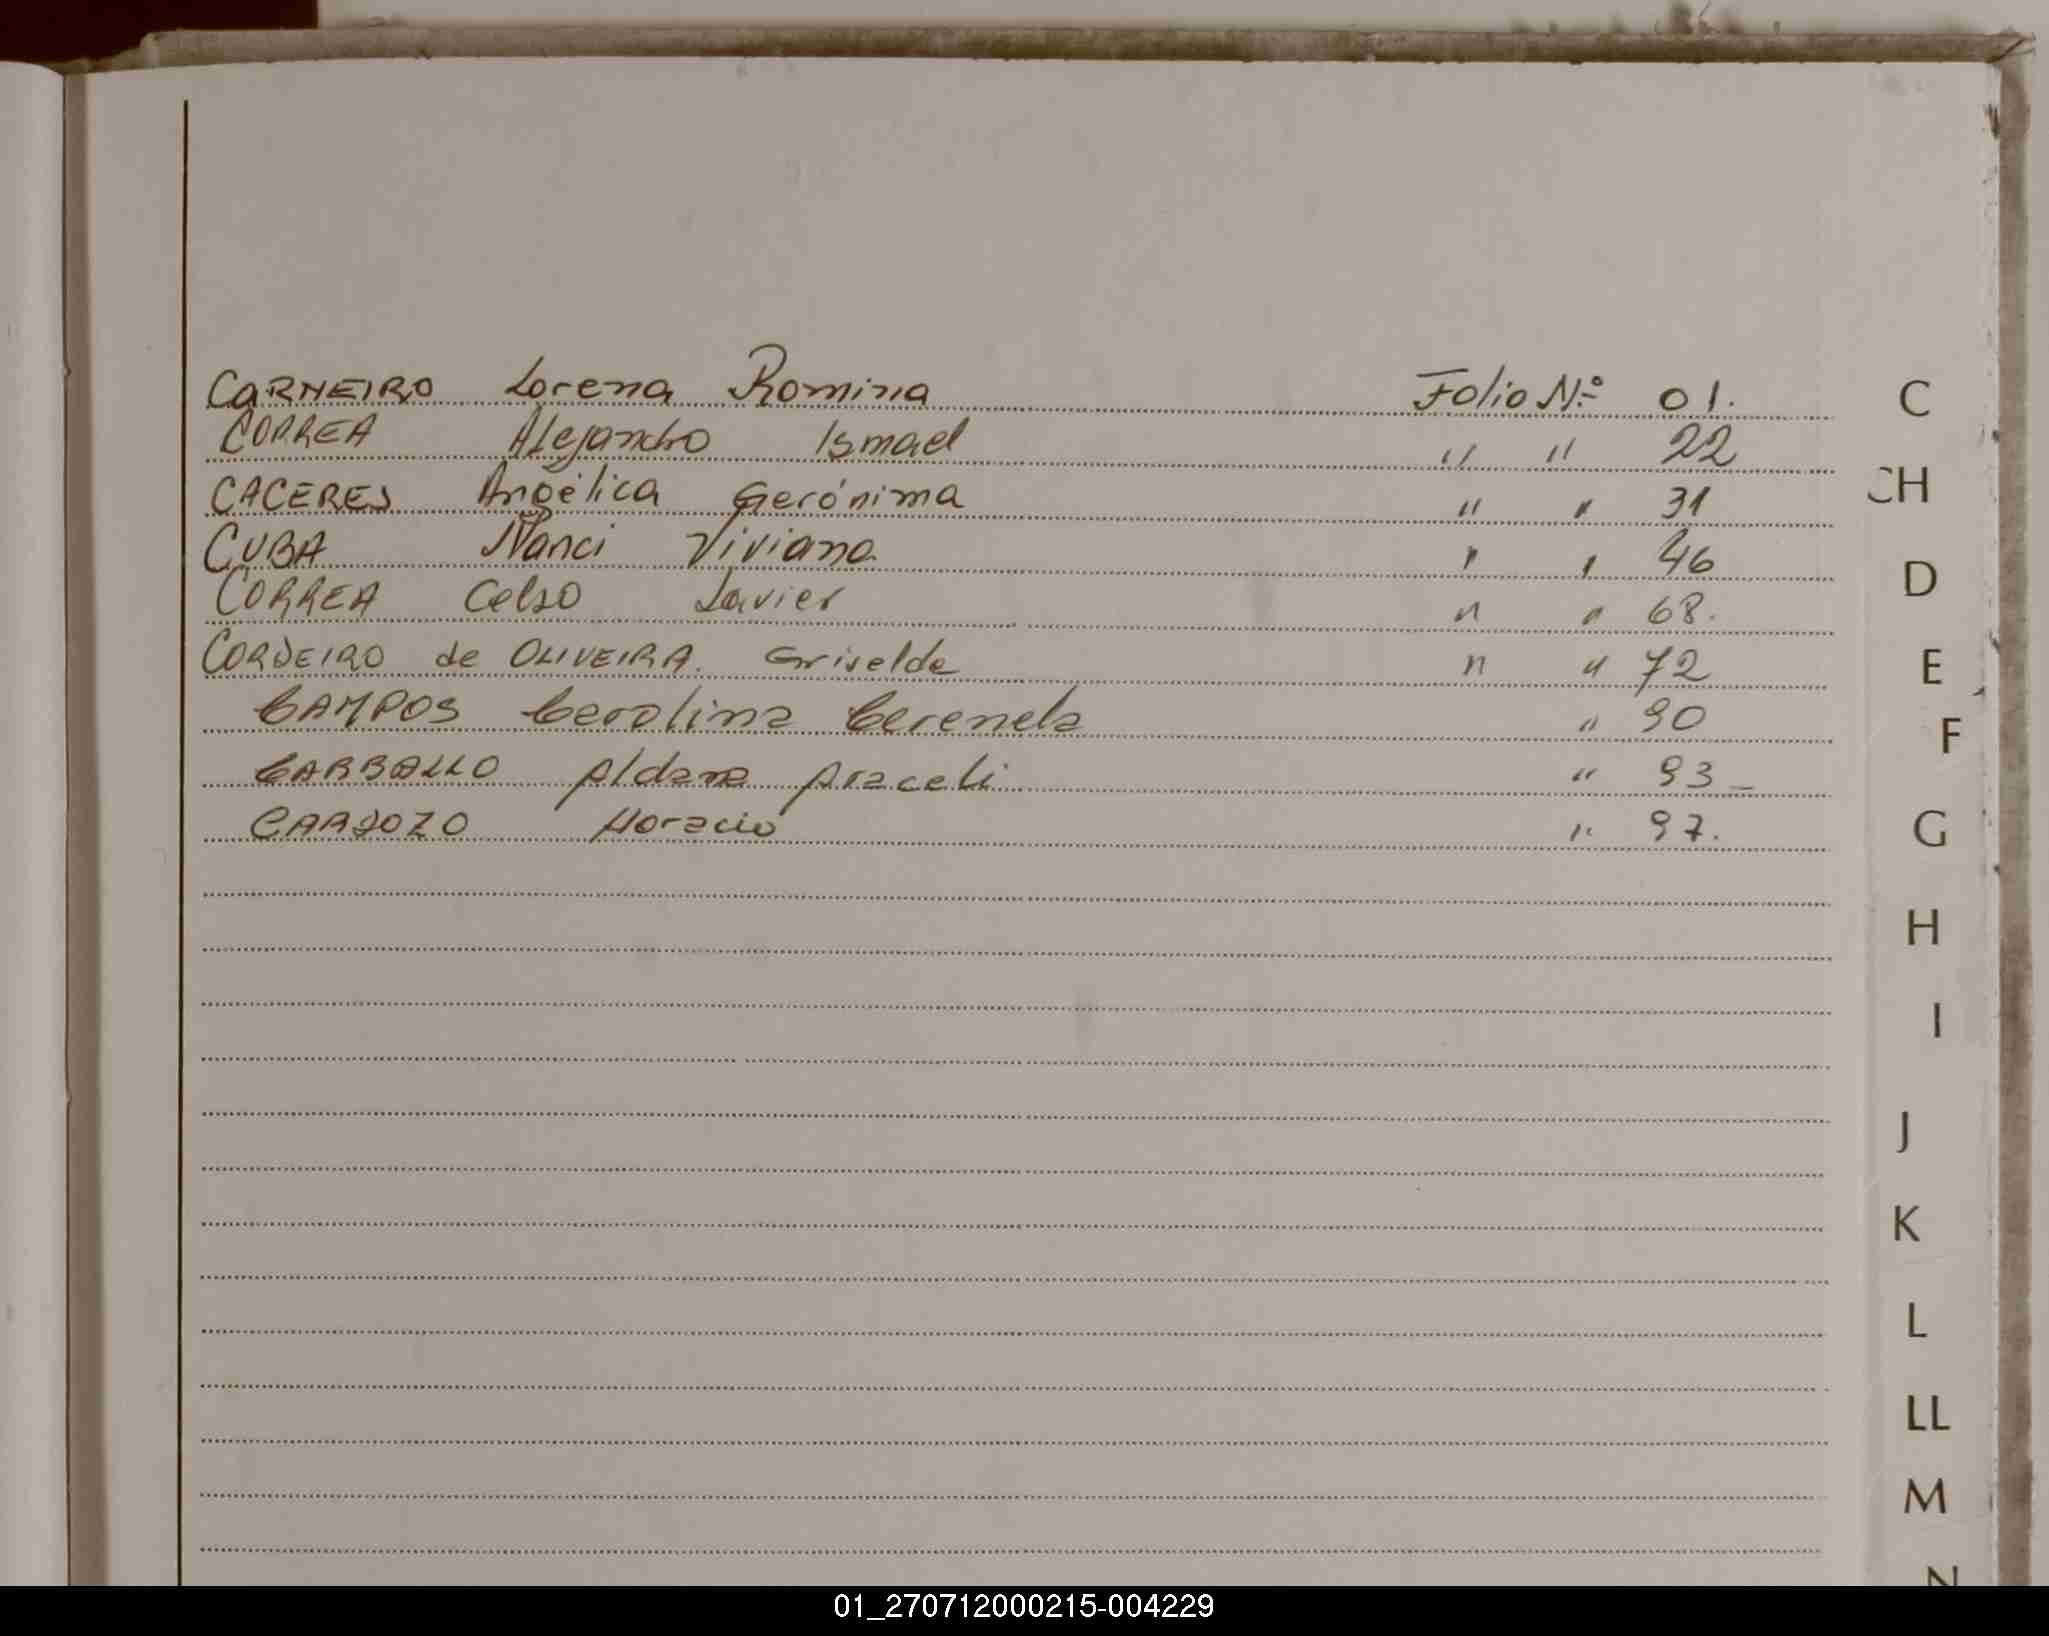 CARNEIRO Lorena Romina Folio Nº 01.
CORREA Alejandro Ismael " " 22
CACERES Angélica Gerónima " " 31
CUBA Nanci Viviana " " 46
CORREA Celso Javier " " 68.
CORDEIRO de OLIVEIRA. Griselda " " 72
CAMPOS Carolina Cerenela " 90
CARBALLO Aldana Araceli " 93_
CARDOZO Horacio " 97.
C
CH
D
E
F
G
H
I
J
K
L
LL
M
N
01_270712000215-004229